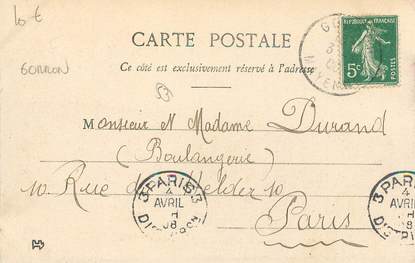 10 €
GORRON
CARTE POSTALE
Ce côté est exclusivement réservé à l'adresse
REPUBLIQUE FRANÇAISE
5c
POSTES
Monsieur et Madame Durand
(Boulangerie)
10 Rue du Helder 10
Paris
3 PARIS 3
4
AVRIL
08
DISTRIBUTION
3 PARIS
4
AVRIL